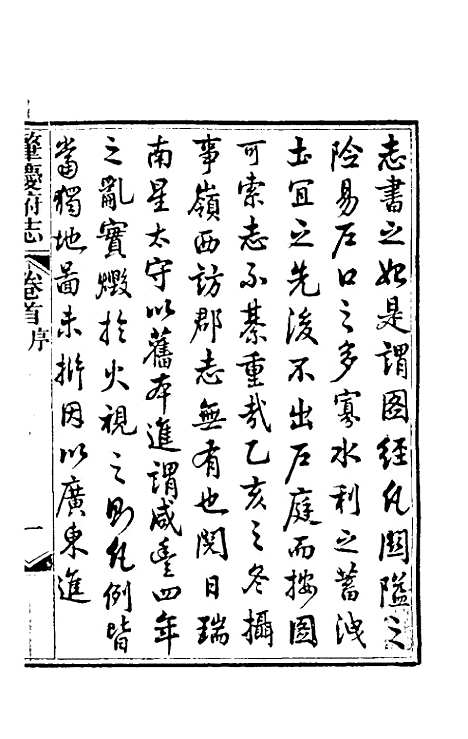 志書之始是謂圖經凡關隘之
險易戶口之多寡水利之蓄洩
土宜之先後不出戶庭而按圖
可索志不綦重哉乙亥之冬攝
事嶺西訪郡志無有也閱日瑞
南星太守以舊本進謂咸豐四年
之亂實燬於火視之則凡例皆
當獨地圖未辦因以廣東進
肇慶府志
卷首
序
一